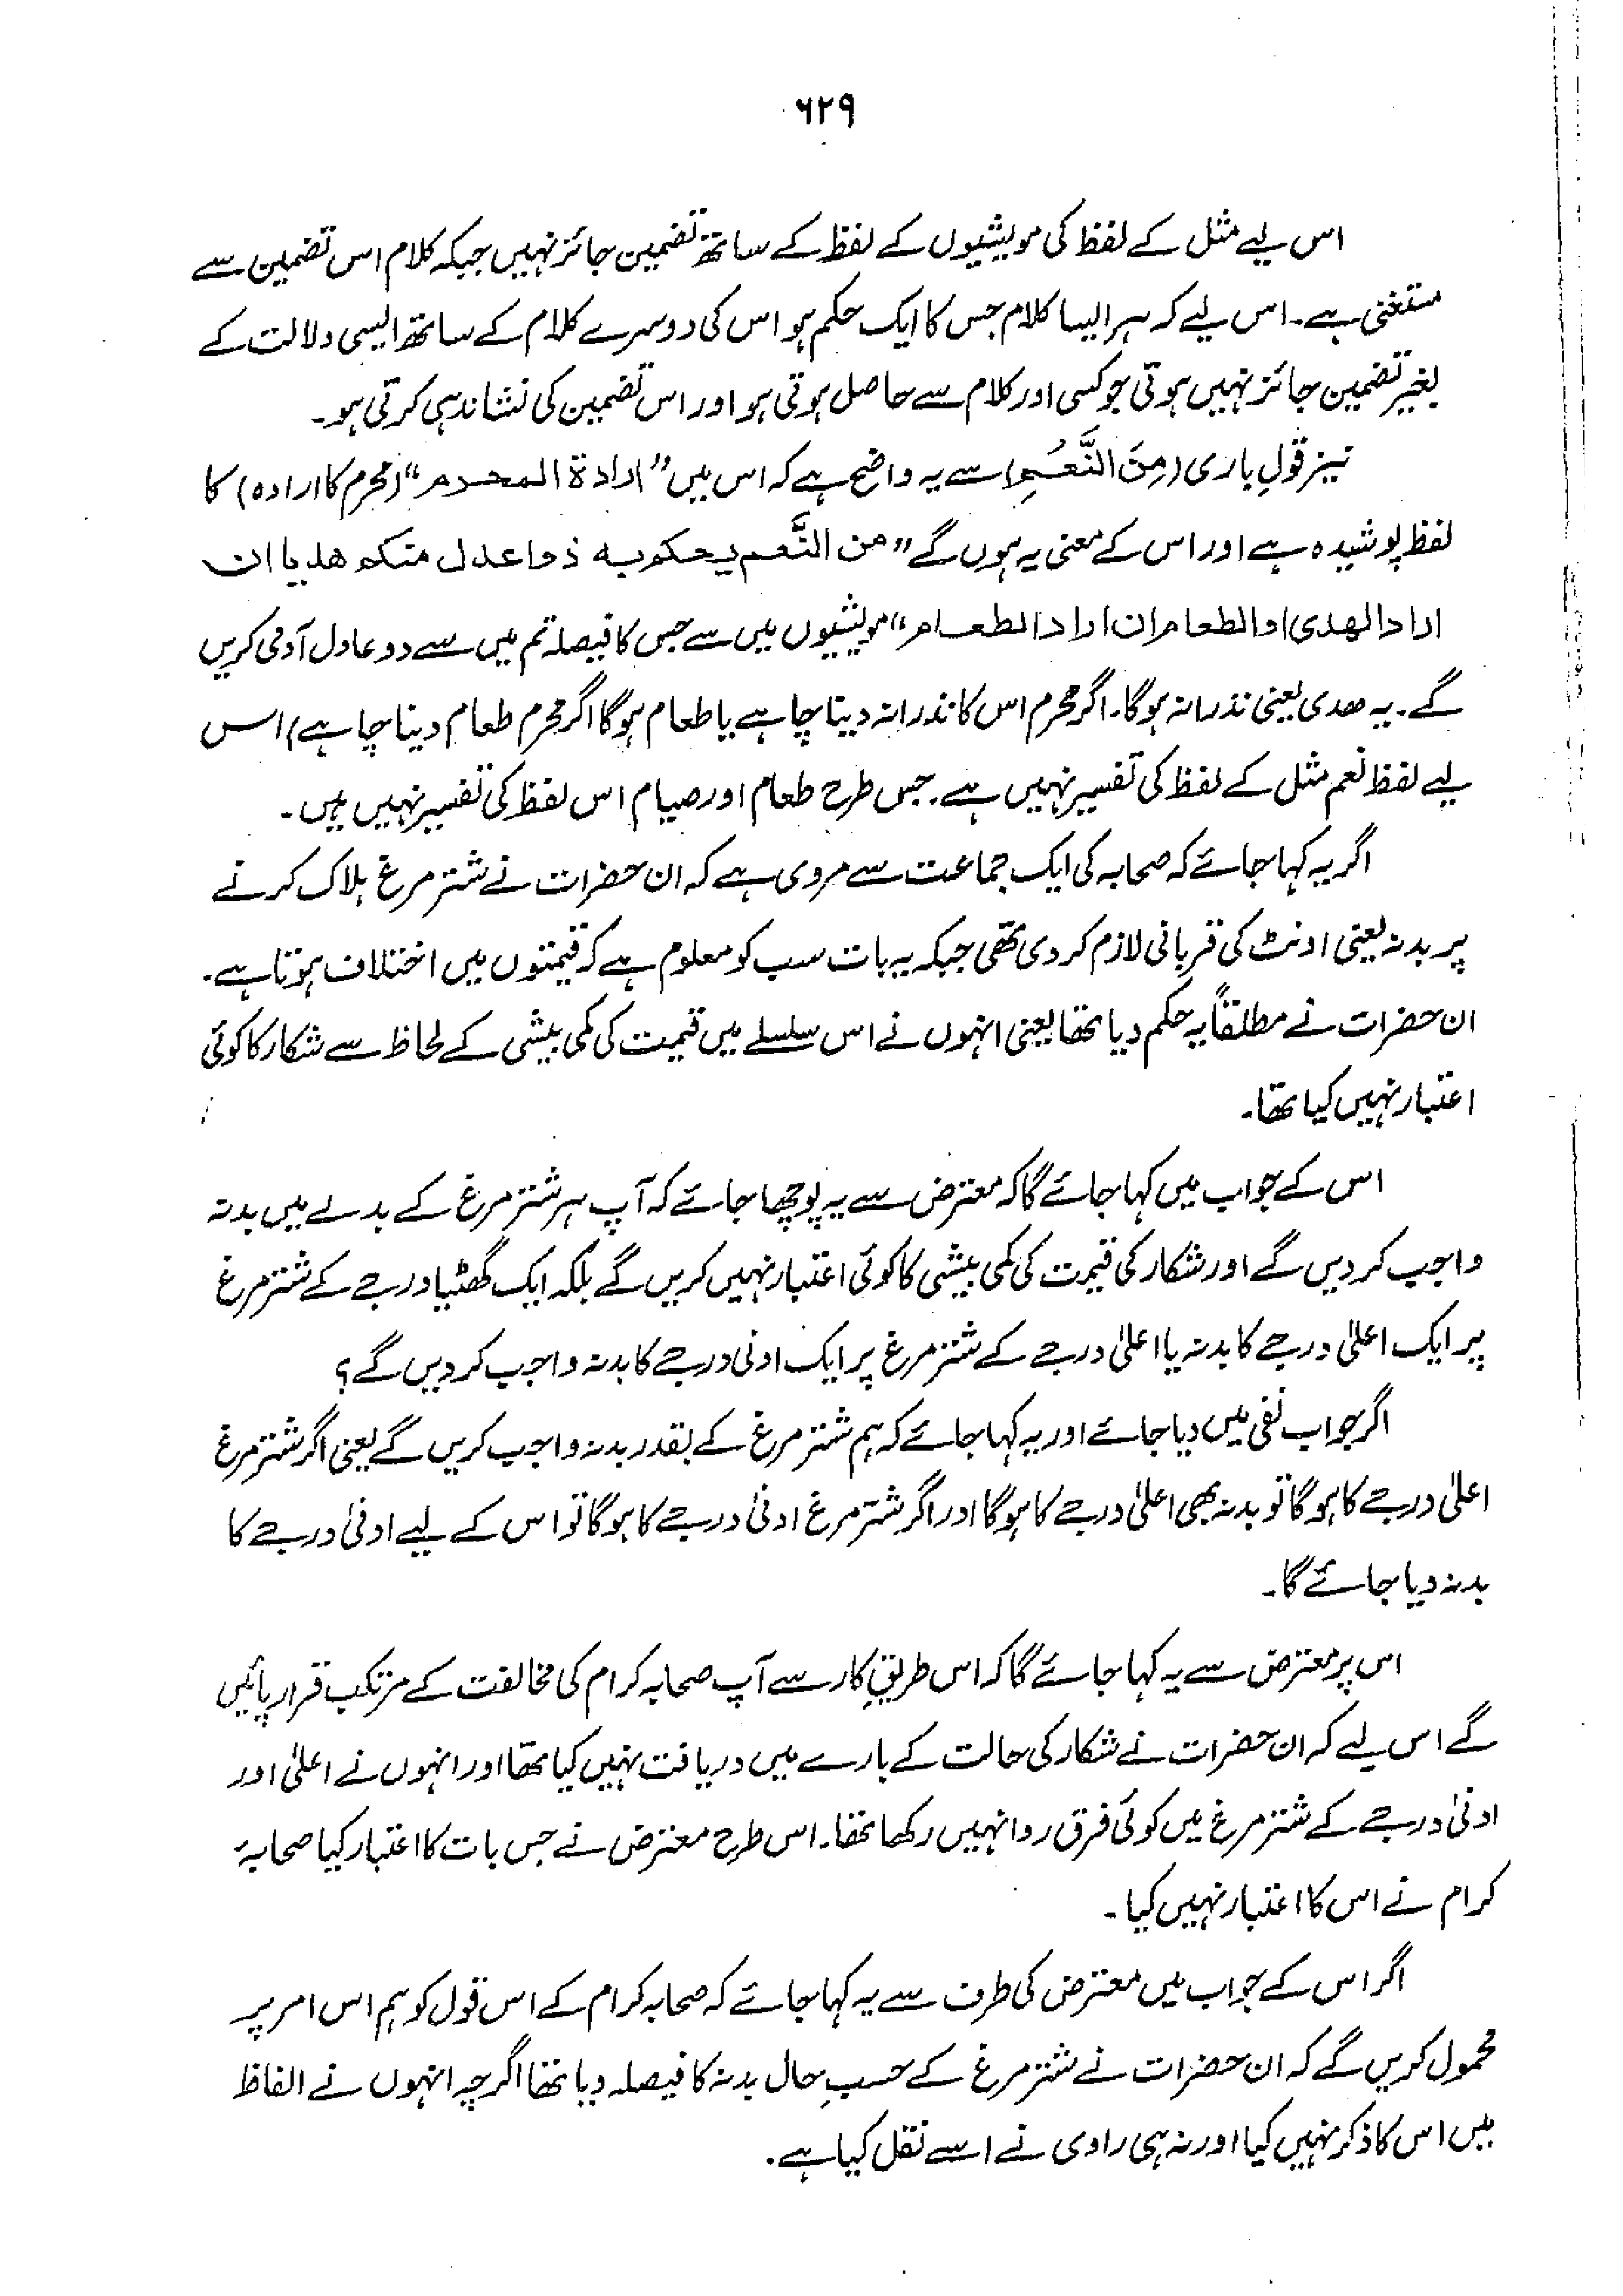 ۶۲۹
اس لیے مثل کے لفظ کی مویشیوں کے لفظ کے ساتھ تضمین جائز نہیں جبکہ کلام اس تضمین سے
مستغنی ہے۔ اس لیے کہ ہر ایسا کلام جس کا ایک حکم ہو اس کی دوسرے کلام کے ساتھ ایسی دلالت کے
بغیر تضمین جائز نہیں ہوتی جو کسی اور کلام سے حاصل ہوتی ہو اور اس تضمین کی نشاندہی کرتی ہو۔
نیز قولِ باری (مِنَ النَّعَمِ) سے یہ واضح ہے کہ اس میں "ارادۃ المحرم" (محرم کا ارادہ) کا
لفظ پوشیدہ ہے اور اس کے معنی یہ ہوں گے "من النَّعم یحکم بہ ذوا عدل منکم ھدیا ان
اراد الھدی او الطعام ان اراد الطعام" مویشیوں میں سے جس کا فیصلہ تم میں سے دو عادل آدمی کریں
گے۔ یہ ھدی یعنی نذرانہ ہوگا۔ اگر محرم اس کا نذرانہ دینا چاہے یا طعام ہوگا اگر محرم طعام دینا چاہے) اس
لیے لفظ نعم مثل کے لفظ کی تفسیر نہیں ہے۔ جس طرح طعام اور صیام اس لفظ کی تفسیر نہیں ہیں۔
اگر یہ کہا جائے کہ صحابہ کی ایک جماعت سے مروی ہے کہ ان حضرات نے شتر مرغ ہلاک کرنے
پر بدنہ یعنی اونٹ کی قربانی لازم کر دی تھی جبکہ یہ بات سب کو معلوم ہے کہ قیمتوں میں اختلاف ہوتا ہے۔
ان حضرات نے مطلقاً یہ حکم دیا تھا یعنی انہوں نے اس سلسلے میں قیمت کی کمی بیشی کے لحاظ سے شکار کا کوئی
اعتبار نہیں کیا تھا۔
اس کے جواب میں کہا جائے گا کہ معترض سے یہ پوچھا جائے کہ آپ ہر شتر مرغ کے بدلے میں بدنہ
واجب کر دیں گے اور شکار کی قیمت کی کمی بیشی کا کوئی اعتبار نہیں کریں گے بلکہ ایک گھٹیا درجے کے شتر مرغ
پر ایک اعلیٰ درجے کا بدنہ یا اعلیٰ درجے کے شتر مرغ پر ایک ادنیٰ درجے کا بدنہ واجب کر دیں گے؟
اگر جواب نفی میں دیا جائے اور یہ کہا جائے کہ ہم شتر مرغ کے بقدر بدنہ واجب کریں گے یعنی اگر شتر مرغ
اعلیٰ درجے کا ہوگا تو بدنہ بھی اعلیٰ درجے کا ہوگا اور اگر شتر مرغ ادنیٰ درجے کا ہوگا تو اس کے لیے ادنیٰ درجے کا
بدنہ دیا جائے گا۔
اس پر معترض سے یہ کہا جائے گا کہ اس طریقِ کار سے آپ صحابہ کرام کی مخالفت کے مرتکب قرار پائیں
گے اس لیے کہ ان حضرات نے شکار کی حالت کے بارے میں دریافت نہیں کیا تھا اور انہوں نے اعلیٰ اور
ادنیٰ درجے کے شتر مرغ میں کوئی فرق روا نہیں رکھا تھا۔ اس طرح معترض نے جس بات کا اعتبار کیا صحابۂ
کرام نے اس کا اعتبار نہیں کیا۔
اگر اس کے جواب میں معترض کی طرف سے یہ کہا جائے کہ صحابہ کرام کے اس قول کو ہم اس امر پر
محمول کریں گے کہ ان حضرات نے شتر مرغ کے حسبِ حال بدنہ کا فیصلہ دیا تھا اگرچہ انہوں نے الفاظ
میں اس کا ذکر نہیں کیا اور نہ ہی راوی نے اسے نقل کیا ہے۔